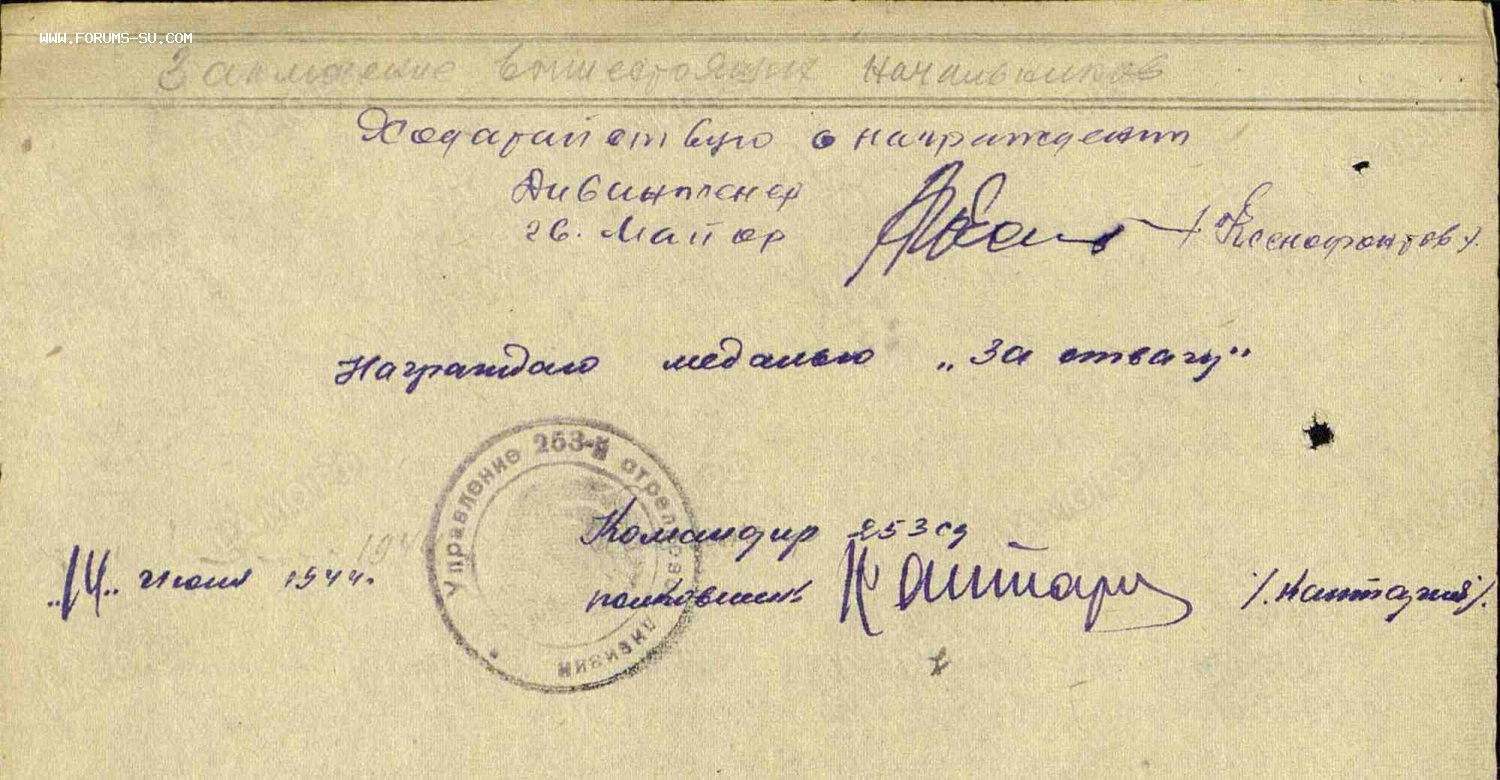 WWW.FORUMS-SU.COM
Заключение вышестоящих начальников
Ходатайствую о награждении
Дивинженер
гв. Майор /Ксенофонтов/.
Награждаю медалью „За отвагу"
Управление 253-й стрелковой дивизии
Командир 253 сд
полковник
„14" июня 1944г.